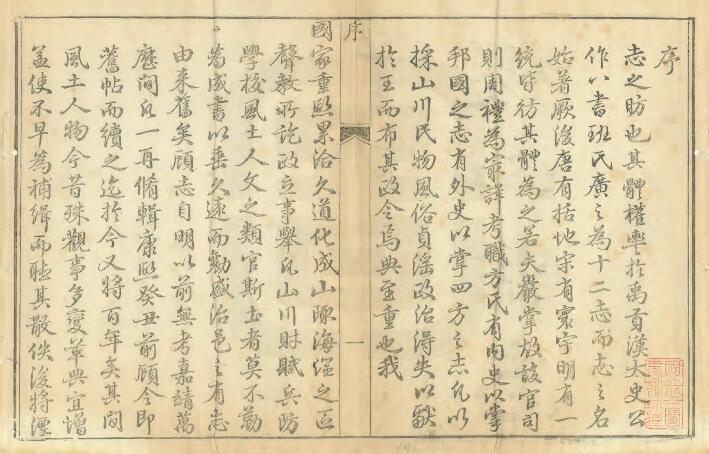 序
志之昉也其體權輿於禹貢漢太史公
作八書班氏廣之為十二志而志之名
始著厥後唐有括地宋有寰宇明有一
統皆彷其體為之若夫嚴掌故設官司
則周禮為最詳考職方氏有內史以掌
邦國之志有外史以掌四方之志凡以
採山川民物風俗貞滛政治得失以獻
於王而布其政令焉典至重也我
序
一
國家重熙累洽久道化成山陬海澨之區
聲教所訖政立事舉凡山川財賦兵防
學校風土人文之類官斯土者莫不勤
為成書以垂久遠而勷盛治邑之有志
由來舊矣顧志自明以前無考嘉靖萬
歷間凡一再脩輯康熙癸丑前顧令即
舊帖而續之迄於今又將百年矣其間
風土人物今昔殊觀事多變革典宜增
益使不早為補緝而聽其散佚後將湮